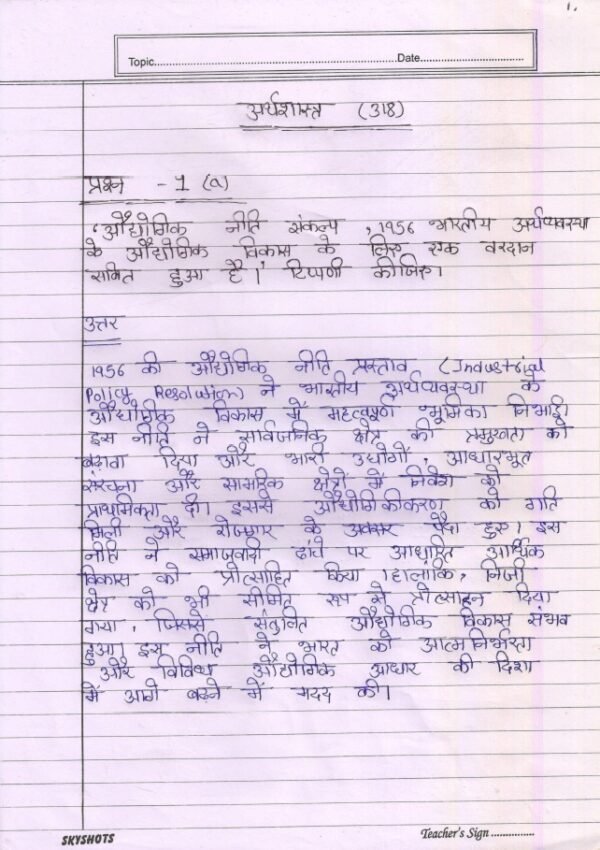 1.
Topic.......................................................................Date...................................
अर्थशास्त्र (318)
प्रश्न - 1 (a)
'औद्योगिक नीति संकल्प, 1956 भारतीय अर्थव्यवस्था
के औद्योगिक विकास के लिए एक वरदान
साबित हुआ है।' टिप्पणी कीजिए।
उत्तर
1956 की औद्योगिक नीति प्रस्ताव (Industrial
Policy Resolution) ने भारतीय अर्थव्यवस्था के
औद्योगिक विकास में महत्वपूर्ण भूमिका निभाई।
इस नीति ने सार्वजनिक क्षेत्र की प्रमुखता को
बढ़ावा दिया और भारी उद्योगों, आधारभूत
संरचना और सामरिक क्षेत्रों में निवेश को
प्राथमिकता दी। इससे औद्योगिकीकरण को गति
मिली और रोजगार के अवसर पैदा हुए। इस
नीति ने समाजवादी ढांचे पर आधारित आर्थिक
विकास को प्रोत्साहित किया। हालांकि, निजी
क्षेत्र को भी सीमित रूप से प्रोत्साहन दिया
गया, जिससे संतुलित औद्योगिक विकास संभव
हुआ। इस नीति ने भारत को आत्मनिर्भरता
और विविध औद्योगिक आधार की दिशा
में आगे बढ़ने में मदद की।
SKYSHOTS
Teacher's Sign ...............